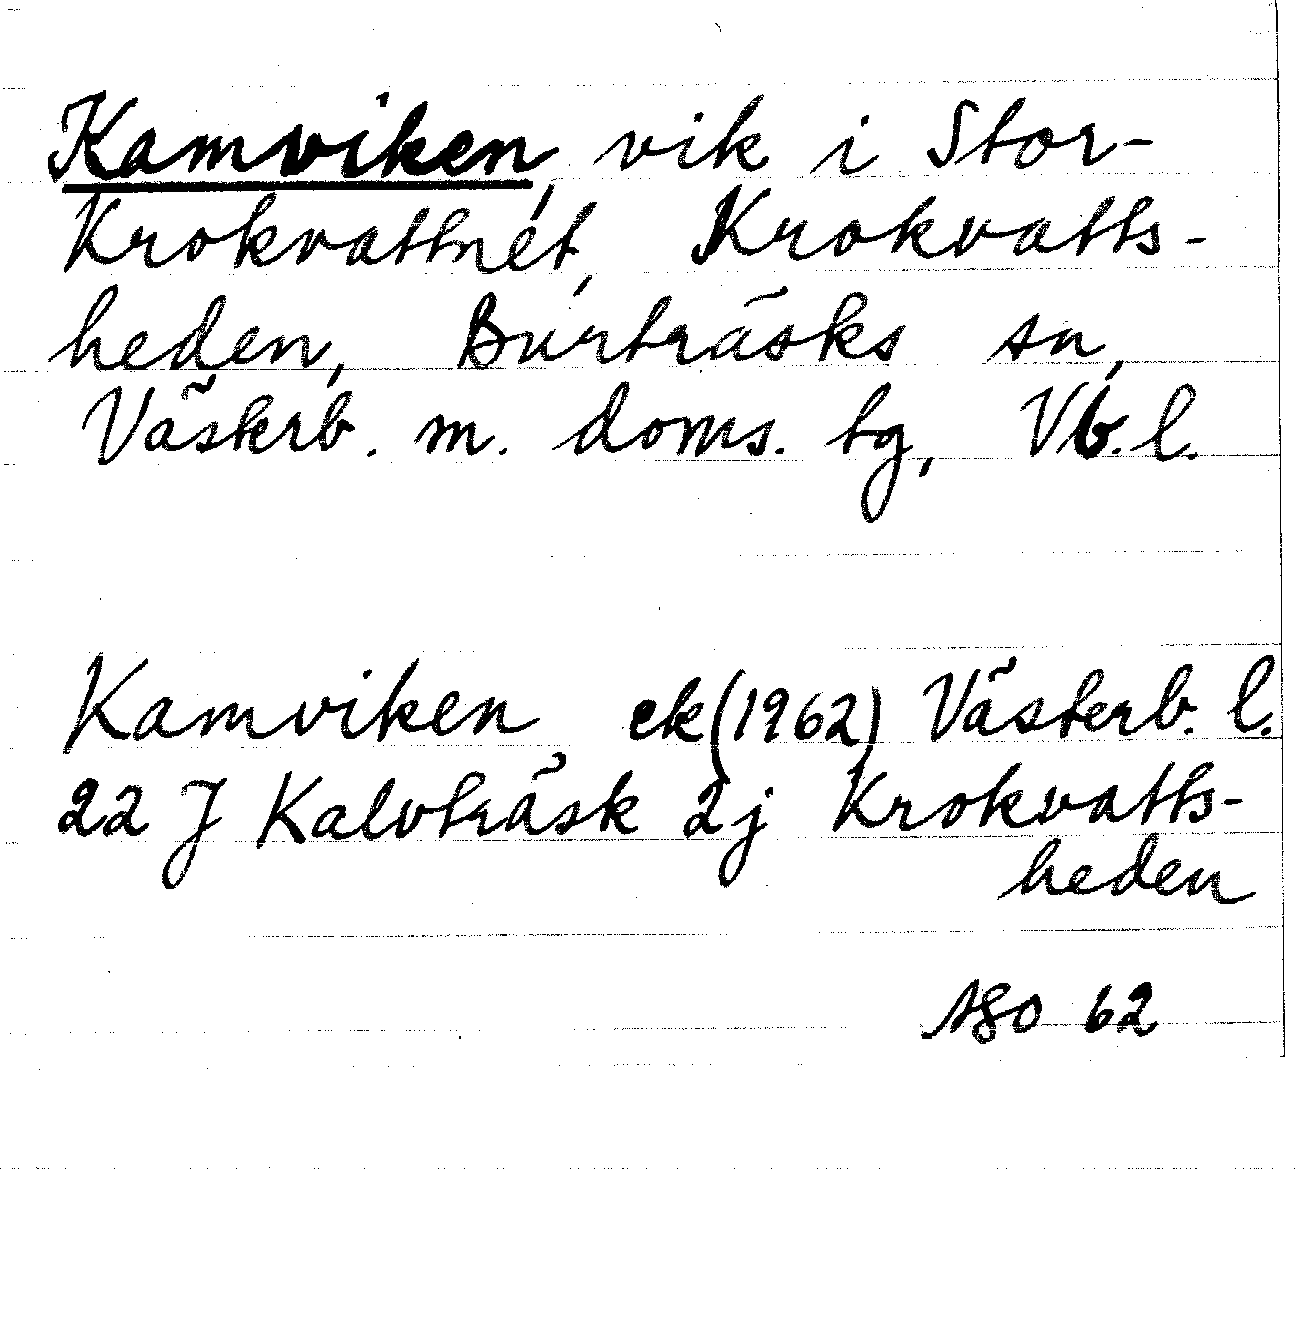 Kamviken, vik i Stor-
Krokvattnet, Krokvatts-
heden, Burträsks sn,
Västerb. m. doms. tg, Vb. l.
Kamviken, ek (1962) Västerb. l.
22 J Kalvträsk 2j Krokvatts-
heden
ASO 62